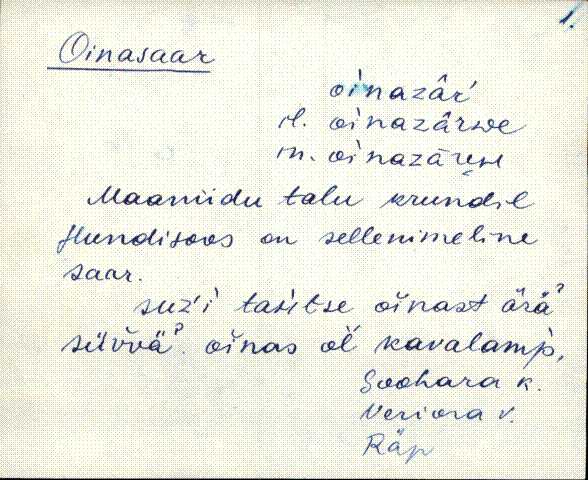 1.
Oinasaar
oi̬'nazâŕ
il. oi̬'nazârwe
in. oi̬'nazārest
Maaniidu talu krundil
Hundisoos on sellenimeline
saar.
suzi tahtse oinast ärä?
süvvä?. oinas oĺl kavalamp,
Soohara k.
Veriora v.
Räp